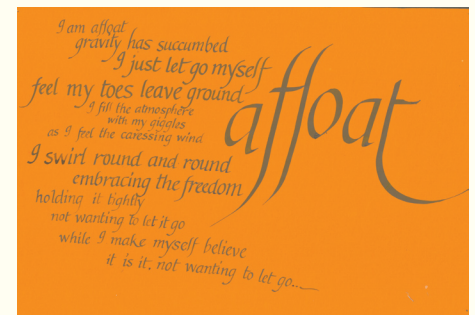 I am affoat
gravity has succumbed
I just let go myself
feel my toes leave ground
I fill the atmosphere
with my giggles
as I feel the caressing wind
I swirl round and round
embracing the freedom
holding it tightly
not wanting to let it go
while I make myself believe
it is it, not wanting to let go...
affoat